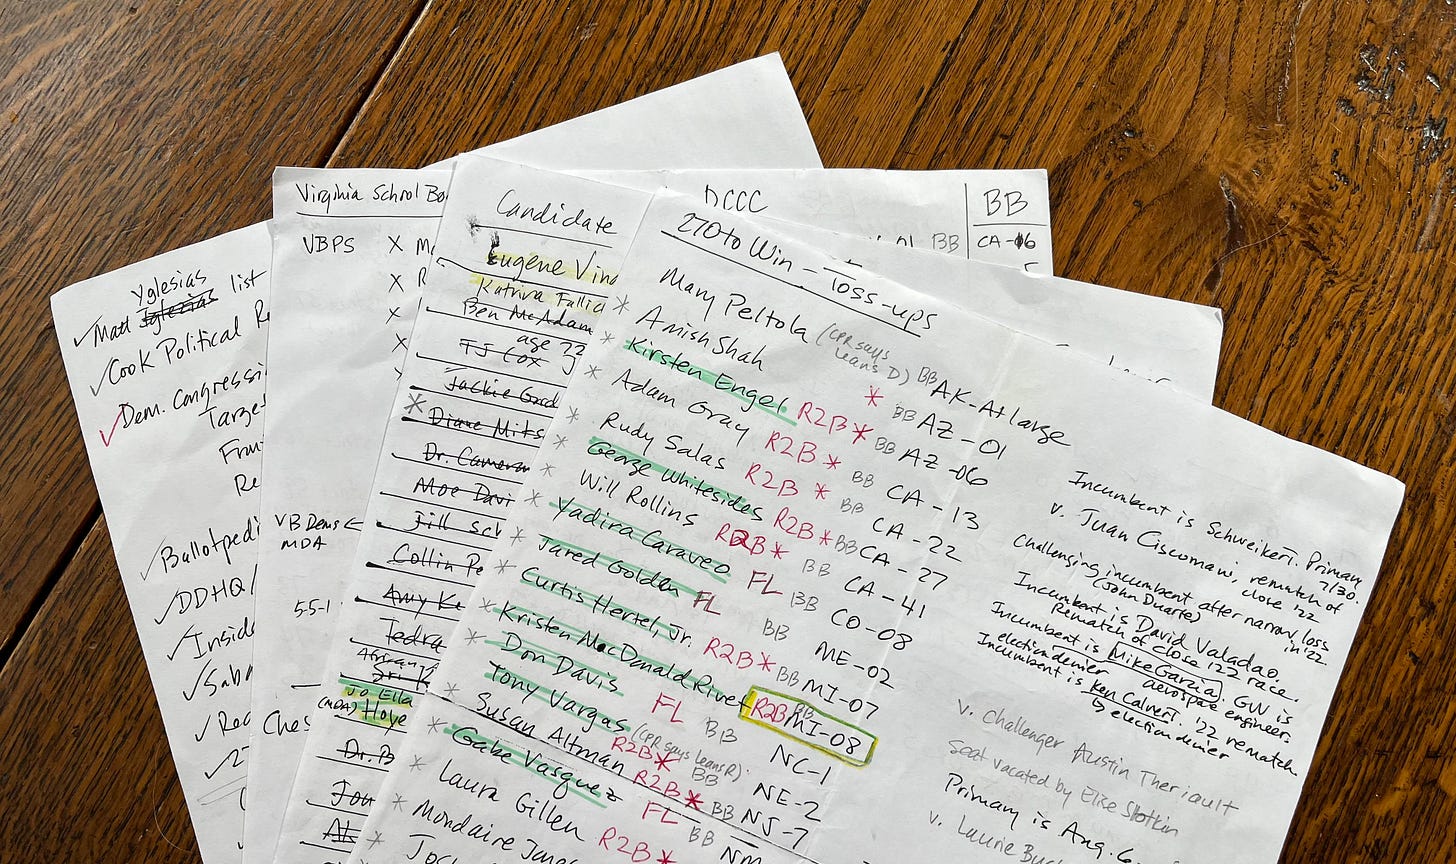 Yglesias
✓ Matt Iglezias list
✓ Cook Political R
✓ Dem. Congressi
Targe
Fron
Re
✓ Ballotpedi
✓ DDHQ/
✓ Insid
✓ Sab
✓ Rea
✓ 27
Virginia School Bo
VBPS X M
X R
X
X
VB Dems ←
MDA
55-1
Ches
Candidate
Eugene Vind
Katrina
Ben McAdam
age
TJ Cox
Jackie Gord
* Diane Mits
Dr. Cameron
Moe Davi
Jill Sch
Collin Pe
Amy Ke
Tedra
Jo Ella
(MDA) Hoye
Dr. B
Jon
Al
DCCC
BB
BB
CA-16
270 to Win – Toss-ups
Mary Peltola (CPR says leans D) BB AK-At large
* Amish Shah * BB AZ-01
* Kirsten Engel R2B* BB AZ-06
* Adam Gray R2B* BB CA-13
* Rudy Salas R2B* BB CA-22
* George Whitesides R2B* BB CA-27
* Will Rollins R2B* BB CA-41
* Yadira Caraveo FL BB CO-08
* Jared Golden FL BB ME-02
* Curtis Hertel, Jr. R2B* BB MI-07
* Kristen MacDonald Rivet R2B BB MI-08
* Don Davis FL BB NC-1
Tony Vargas (CPR says leans R) R2B* BB NE-2
* Susan Altman R2B* BB NJ-7
* Gabe Vasquez FL BB NM
Laura Gillen R2B*
* Mondaire Jones
Incumbent is Schweikert. Primary 7/30.
v. Juan Ciscomani, rematch of close '22
Challenging incumbent after narrow loss in '22
(John Duarte)
Incumbent is David Valadao.
Rematch of close '22 race.
Incumbent is Mike Garcia. GW is
election denier aerospace engineer.
Incumbent is Ken Calvert. '22 rematch
↳ election denier
v. Challenger Austin Theriault
Seat vacated by Elise Slotkin
Primary is Aug. 6
v. Laurie Buc